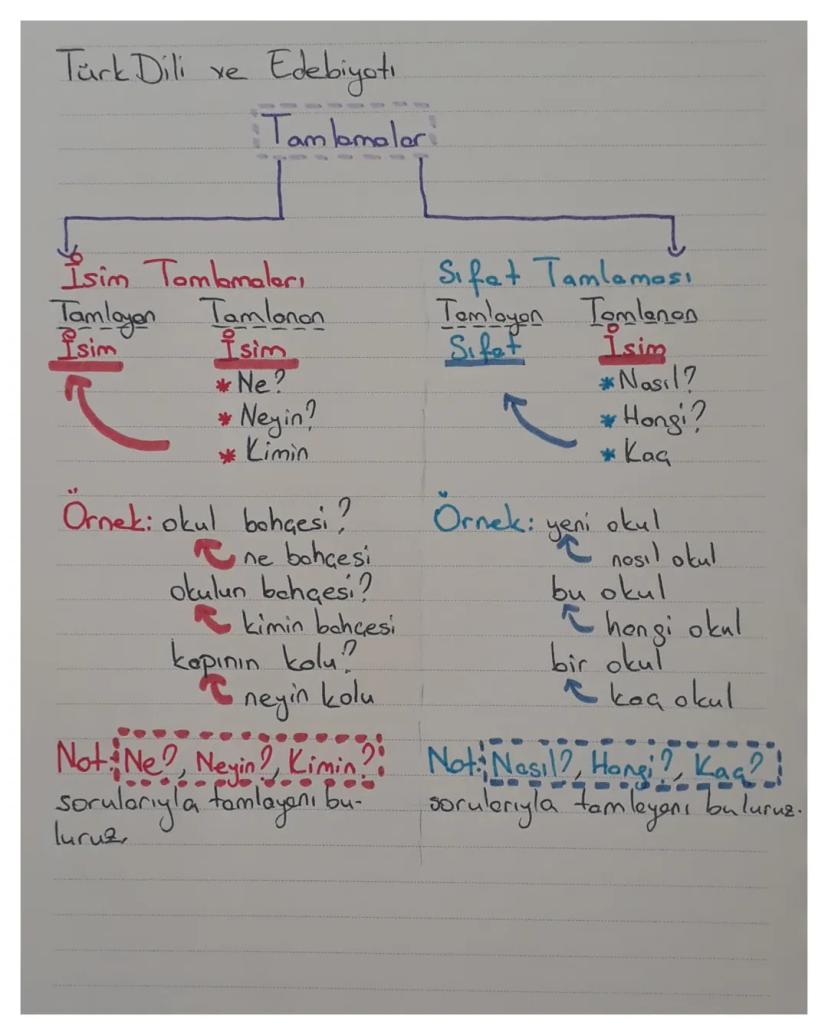 Türk Dili ve Edebiyatı
Tamlamalar
İsim Tamlamaları
Tamlayan Tamlanan
İsim İsim
* Ne?
* Neyin?
* Kimin
Örnek: okul bahçesi?
ne bahçesi
okulun bahçesi?
kimin bahçesi
kapının kolu?
neyin kolu
Not: Ne?, Neyin?, Kimin?
sorularıyla tamlayanı bu-
luruz.
Sıfat Tamlaması
Tamlayan Tamlanan
Sıfat İsim
* Nasıl?
* Hangi?
* Kaç
Örnek: yeni okul
nasıl okul
bu okul
hangi okul
bir okul
kaç okul
Not: Nasıl?, Hangi?, Kaç?
sorularıyla tamlayanı buluruz.